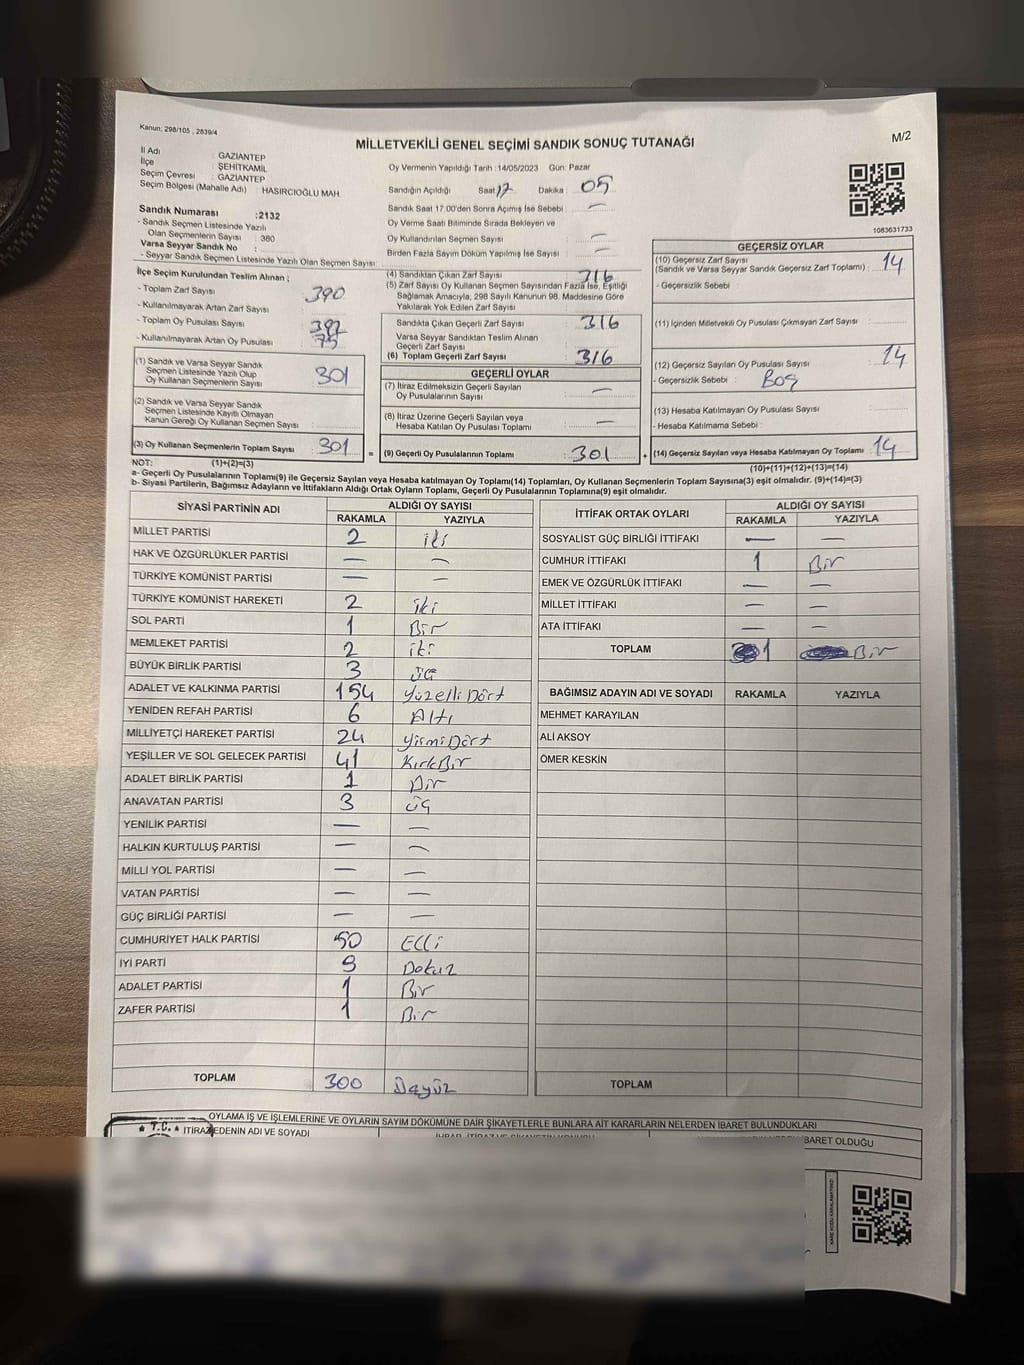 Kanun: 298/105 , 2839/4
MİLLETVEKİLİ GENEL SEÇİMİ SANDIK SONUÇ TUTANAĞI
M/2
İl Adı : GAZİANTEP
İlçe : ŞEHİTKAMİL
Seçim Çevresi : GAZİANTEP
Seçim Bölgesi (Mahalle Adı) : HASIRCIOĞLU MAH.
Sandık Numarası :2132
- Sandık Seçmen Listesinde Yazılı
Olan Seçmenlerin Sayısı : 380
Varsa Seyyar Sandık No :
- Seyyar Sandık Seçmen Listesinde Yazılı Olan Seçmen Sayısı:
Oy Vermenin Yapıldığı Tarih : 14/05/2023 Gün: Pazar
Sandığın Açıldığı Saat 17 Dakika : 05
Sandık Saat 17:00'den Sonra Açımış İse Sebebi : —
Oy Verme Saati Bitiminde Sırada Bekleyen ve
Oy Kullandırılan Seçmen Sayısı : —
Birden Fazla Sayım Döküm Yapılmış İse Sayısı : —
1083631733
İlçe Seçim Kurulundan Teslim Alınan ;
- Toplam Zarf Sayısı : 390
- Kullanılmayarak Artan Zarf Sayısı :
- Toplam Oy Pusulası Sayısı :
- Kullanılmayarak Artan Oy Pusulası : 75
(1) Sandık ve Varsa Seyyar Sandık
Seçmen Listesinde Yazılı Olup
Oy Kullanan Seçmenlerin Sayısı : 301
(2) Sandık ve Varsa Seyyar Sandık
Seçmen Listesinde Kayıtlı Olmayan
Kanun Gereği Oy Kullanan Seçmen Sayısı :
(3) Oy Kullanan Seçmenlerin Toplam Sayısı : 301
(4) Sandıktan Çıkan Zarf Sayısı : 316
(5) Zarf Sayısı Oy Kullanan Seçmen Sayısından Fazla İse, Eşitliği
Sağlamak Amacıyla, 298 Sayılı Kanunun 98. Maddesine Göre
Yakılarak Yok Edilen Zarf Sayısı :
Sandıkta Çıkan Geçerli Zarf Sayısı : 316
Varsa Seyyar Sandıktan Teslim Alınan
Geçerli Zarf Sayısı :
(6) Toplam Geçerli Zarf Sayısı : 316
GEÇERLİ OYLAR
(7) İtiraz Edilmeksizin Geçerli Sayılan
Oy Pusulalarının Sayısı : —
(8) İtiraz Üzerine Geçerli Sayılan veya
Hesaba Katılan Oy Pusulası Toplamı : —
= (9) Geçerli Oy Pusulalarının Toplamı : 301 +
GEÇERSİZ OYLAR
(10) Geçersiz Zarf Sayısı
(Sandık ve Varsa Seyyar Sandık Geçersiz Zarf Toplamı) : 14
- Geçersizlik Sebebi :
(11) İçinden Milletvekili Oy Pusulası Çıkmayan Zarf Sayısı :
(12) Geçersiz Sayılan Oy Pusulası Sayısı : 14
- Geçersizlik Sebebi : Boş
(13) Hesaba Katılmayan Oy Pusulası Sayısı :
- Hesaba Katılmama Sebebi :
(14) Geçersiz Sayılan veya Hesaba Katılmayan Oy Toplamı : 14
NOT: (1)+(2)=(3)
(10)+(11)+(12)+(13)=(14)
a- Geçerli Oy Pusulalarının Toplamı(9) ile Geçersiz Sayılan veya Hesaba katılmayan Oy Toplamı(14) Toplamları, Oy Kullanan Seçmenlerin Toplam Sayısına(3) eşit olmalıdır. (9)+(14)=(3)
b- Siyasi Partilerin, Bağımsız Adayların ve İttifakların Aldığı Ortak Oyların Toplamı, Geçerli Oy Pusulalarının Toplamına(9) eşit olmalıdır.
SİYASİ PARTİNİN ADI ALDIĞI OY SAYISI
RAKAMLA YAZIYLA
MİLLET PARTİSİ 2 iki
HAK VE ÖZGÜRLÜKLER PARTİSİ — —
TÜRKİYE KOMÜNİST PARTİSİ — —
TÜRKİYE KOMÜNİST HAREKETİ 2 iki
SOL PARTİ 1 Bir
MEMLEKET PARTİSİ 2 iki
BÜYÜK BİRLİK PARTİSİ 3 üç
ADALET VE KALKINMA PARTİSİ 154 YüzelliDört
YENİDEN REFAH PARTİSİ 6 Altı
MİLLİYETÇİ HAREKET PARTİSİ 24 YirmiDört
YEŞİLLER VE SOL GELECEK PARTİSİ 41 KırkBir
ADALET BİRLİK PARTİSİ 1 Bir
ANAVATAN PARTİSİ 3 üç
YENİLİK PARTİSİ — —
HALKIN KURTULUŞ PARTİSİ — —
MİLLİ YOL PARTİSİ — —
VATAN PARTİSİ — —
GÜÇ BİRLİĞİ PARTİSİ — —
CUMHURİYET HALK PARTİSİ 50 Elli
İYİ PARTİ 9 Dokuz
ADALET PARTİSİ 1 Bir
ZAFER PARTİSİ 1 Bir
TOPLAM 300 Üçyüz
İTTİFAK ORTAK OYLARI ALDIĞI OY SAYISI
RAKAMLA YAZIYLA
SOSYALİST GÜÇ BİRLİĞİ İTTİFAKI — —
CUMHUR İTTİFAKI 1 Bir
EMEK VE ÖZGÜRLÜK İTTİFAKI — —
MİLLET İTTİFAKI — —
ATA İTTİFAKI — —
TOPLAM 1 Bir
BAĞIMSIZ ADAYIN ADI VE SOYADI RAKAMLA YAZIYLA
MEHMET KARAYILAN
ALİ AKSOY
ÖMER KESKİN
TOPLAM
OYLAMA İŞ VE İŞLEMLERİNE VE OYLARIN SAYIM DÖKÜMÜNE DAİR ŞİKAYETLERLE BUNLARA AİT KARARLARIN NELERDEN İBARET BULUNDUKLARI
★ T.C. ★
İTİRAZ EDENİN ADI VE SOYADI
İBARET OLDUĞU